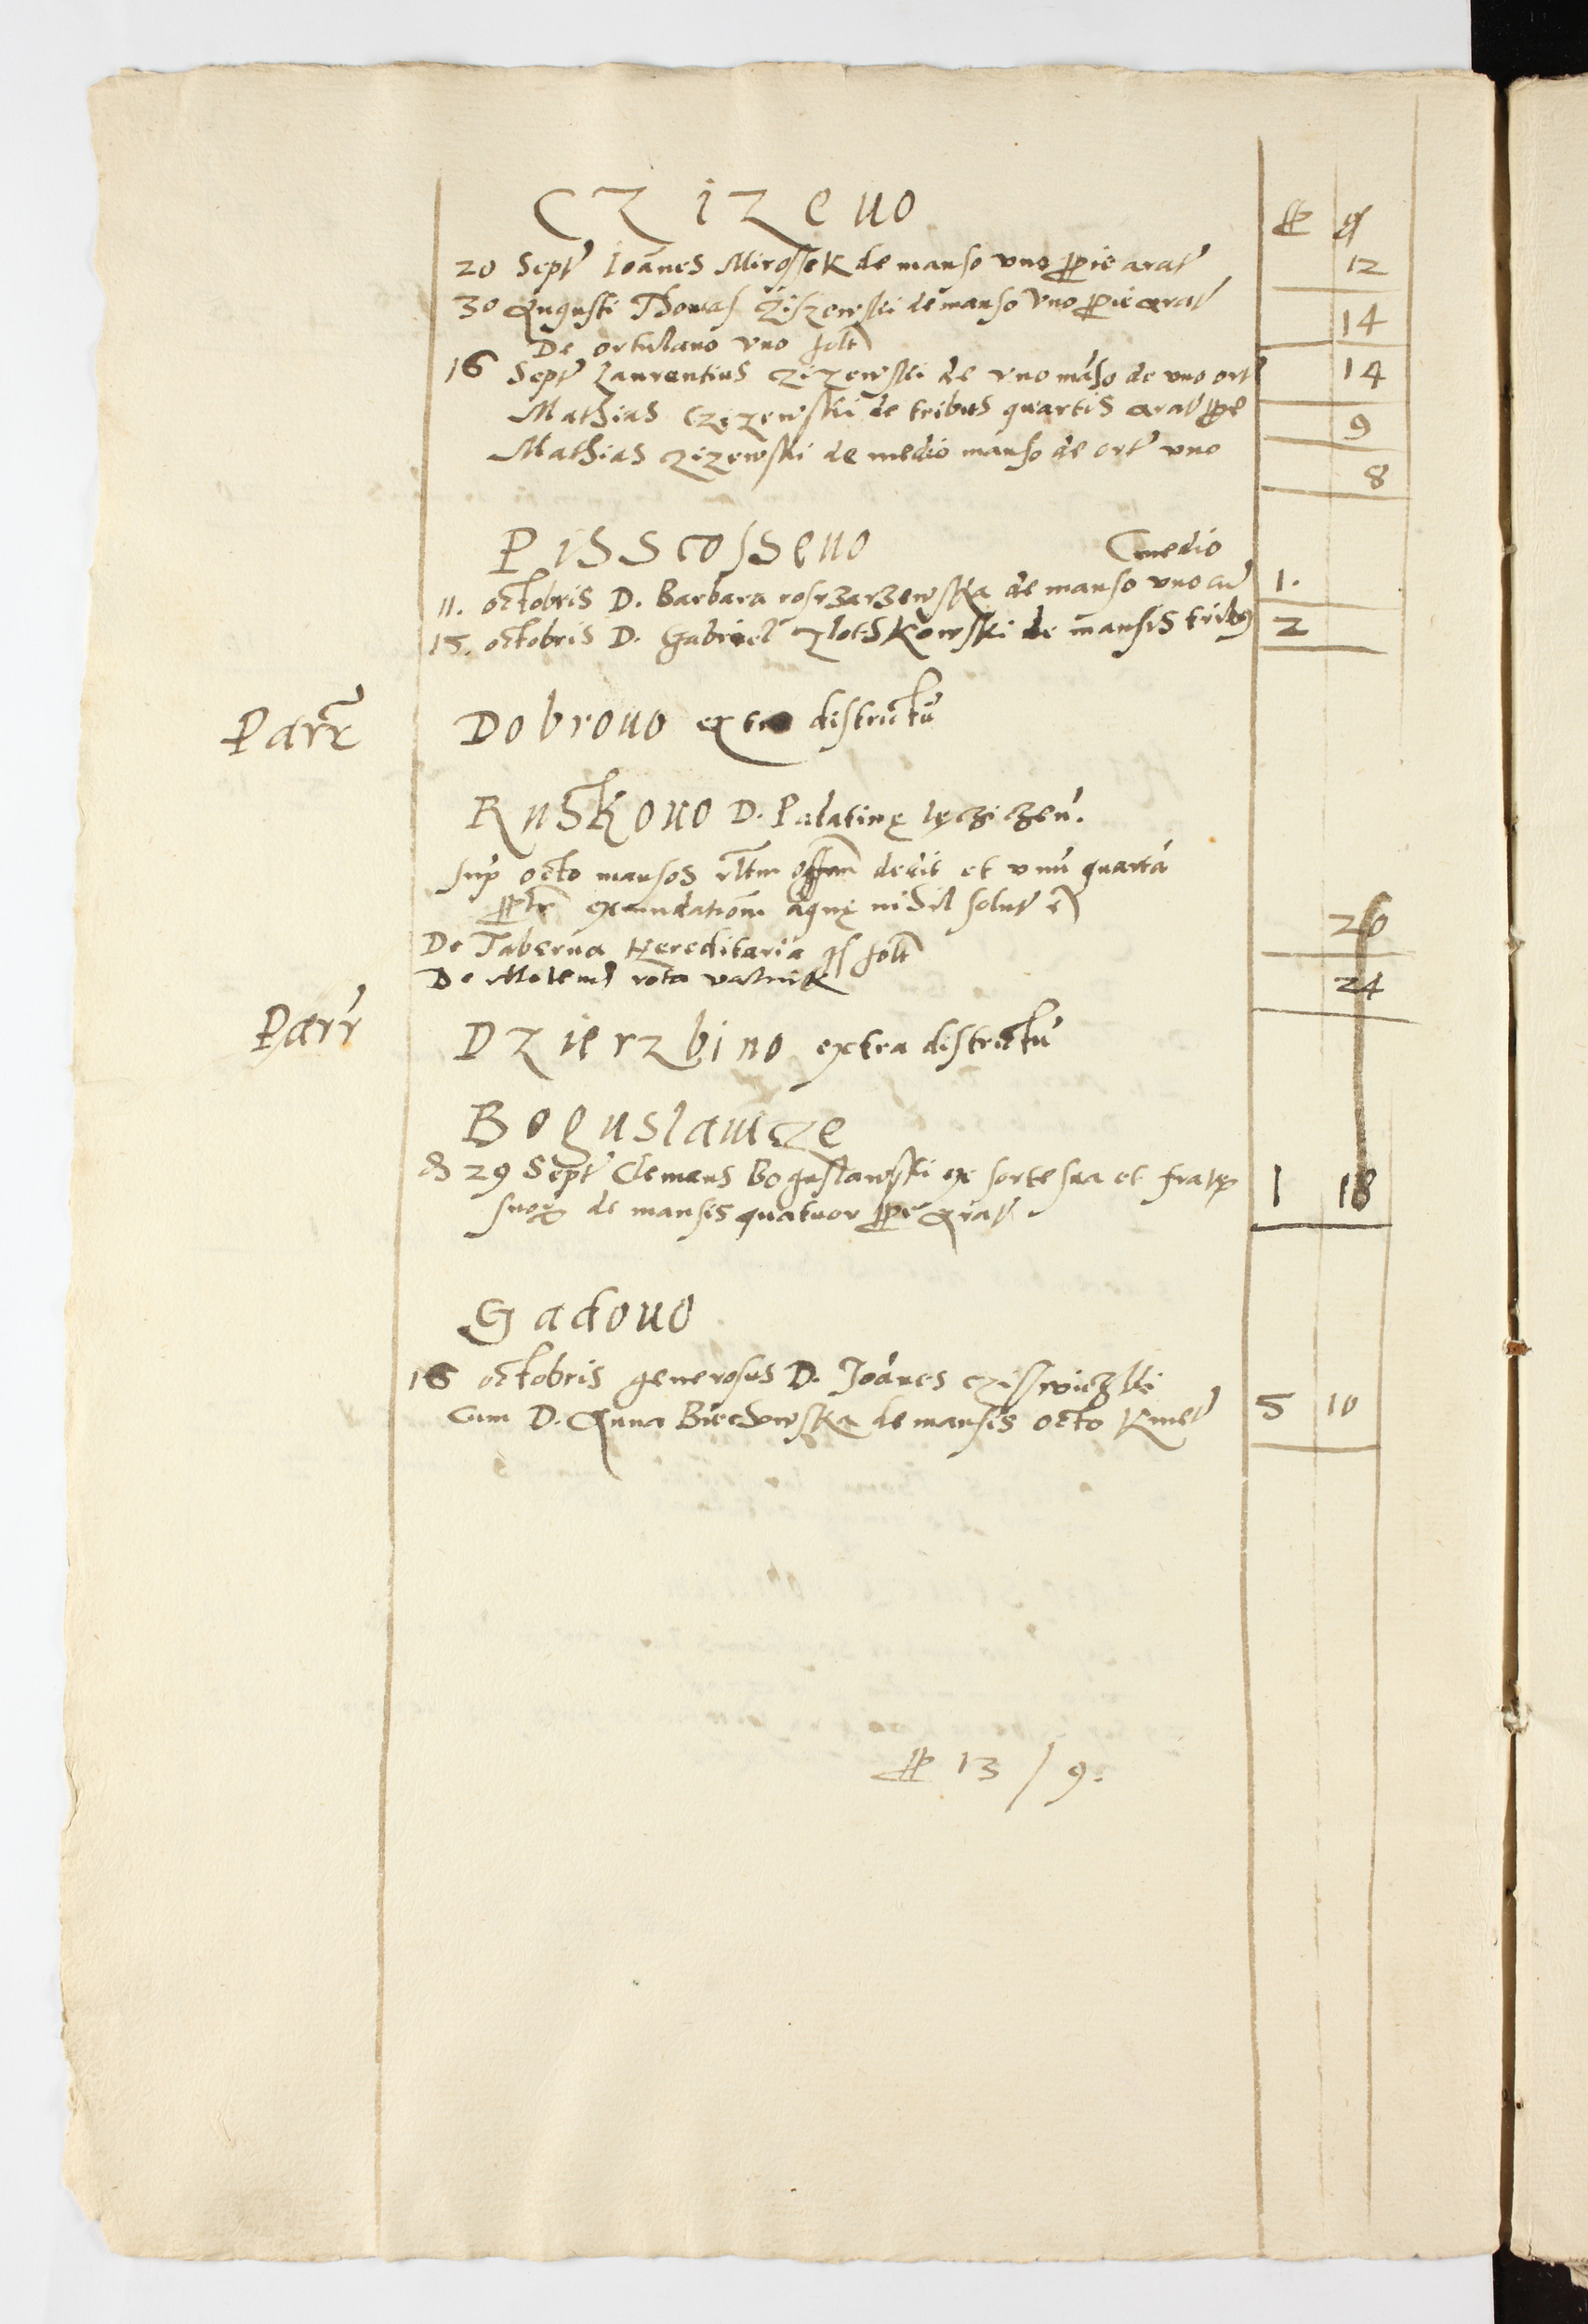 Czizeuo
20 Sept Ioanes Mirossek de manso vno ppie arat 12
30 Augusti Thomas Zizewski de manso vno ppie arat 14
De ortulano vno solt
16 Sept Laurentius Czizewski de vno maso de vno ort 14
Mathias Czizewski de tribus quartis arat ppe 9
Mathias Zizewski de medio manso de ort vno 8
Pisscosseuo
medio
11. octobris D. Barbara rosrzarzewska de manso vno cu 1.
15. octobris D. Gabriel Zlotskowski de mansis tribq 2
Parr Dobrouo extra districtu
Ruskouo D. Palatinę lęcziczen.
sup octo mansos dedit et vnu quarta
exundationem aquę nihil solut e
De Taberna Hereditaria solt 20
De Molend rota valnik 24
Parr Dzierzbino extra districtu
Boguslawcze
29 Sept Clemens Boguslawski ex sorte sua et fratr 1 18
suor de mansis quatuor ppe arat
Gadouo
16 octobris generosus D. Joanes
Cum D. Anna Biechowska de mansis octo Kmet 5 10
13 / 9.